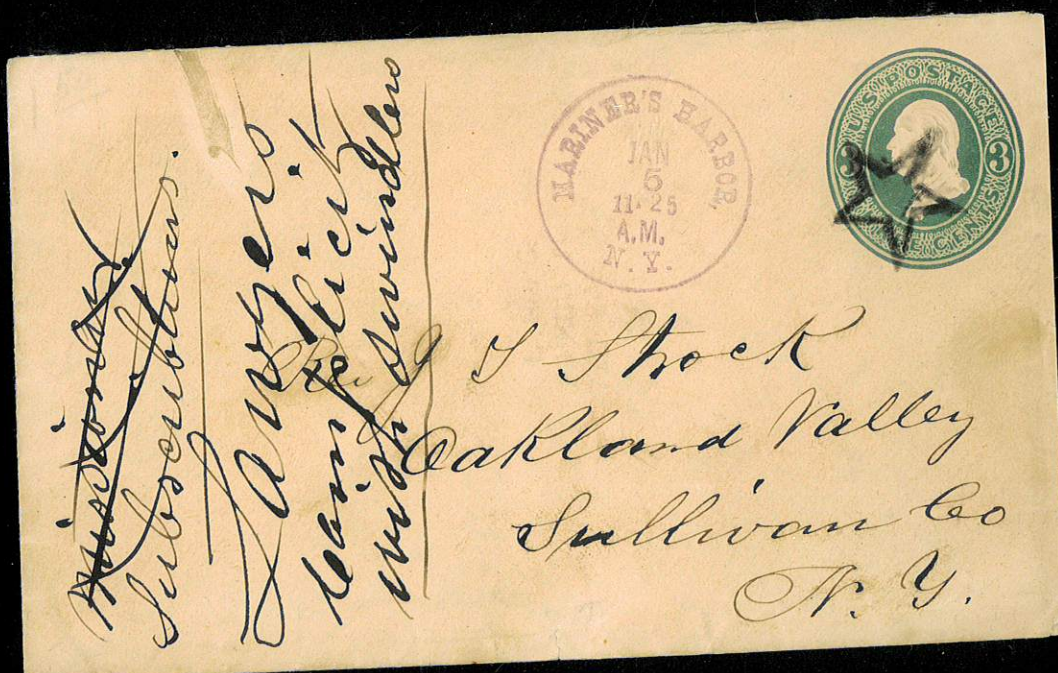 MARINER'S HARBOR,
JAN
5
11-25
A.M.
N. Y.
U.S. POSTAGE
3 3
THREE CENTS
Rev J S Shock
Oakland Valley
Sullivan Co
N. Y.
Missionary
Subscriptions.
Lawyers
complicit
with swindlers